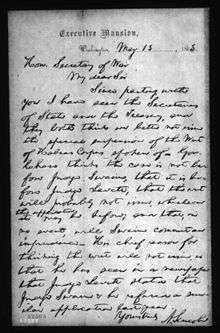 Executive Mansion,
Washington, May 13, 1863.
Hon. Secretary of War
My dear Sir
Since parting with
you I have seen the Secretaries
of State and the Treasury, and
they both think we better not issue
the special suspension of the Writ
of Habeas Corpus spoken of. Gov.
Chase thinks the case is not before
Judge Swaine, that it is before
Judge Leavitt, that the writ
will probably not issue, whichever
the application may be before; and that, in
no event, will Swaine commit an
imprudence. His chief reason for
thinking the writ will not issue, is
that he has seen in a newspaper
that Judge Leavitt stated that
Judge Swaine & he refused a similar
application last year.
Yours truly
A. Lincoln